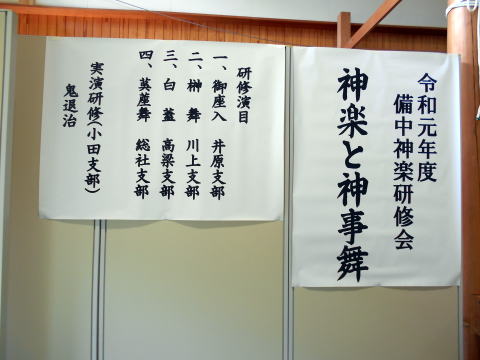 令和元年度
備中神楽研修会
神楽と神事舞
研修演目
一、御座入 井原支部
二、榊舞 川上支部
三、白蓋 高梁支部
四、茣蓙舞 総社支部
実演研修(小田支部)
鬼退治